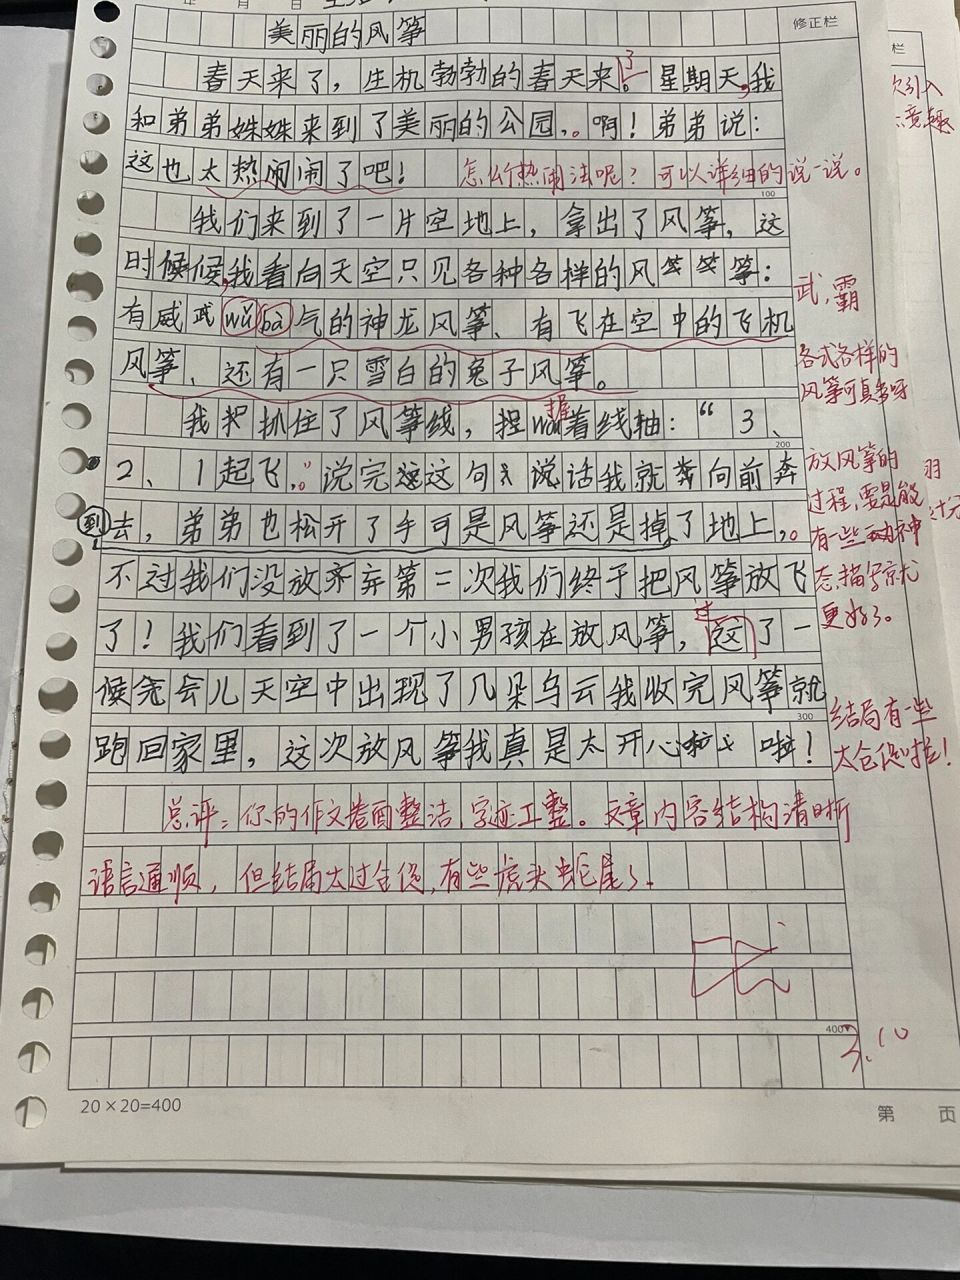 年 月 日
修正栏
美丽的风筝
春天来了，生机勃勃的春天来了。星期天，我
和弟弟姝姝来到了美丽的公园，。啊！弟弟说：
这也太热闹闹了吧！ 怎么个热闹法呢？可以详细的说一说。
100
我们来到了一片空地上，拿出了风筝，这
时候候，我看向天空只见各种各样的风筝筝筝：
有威武wǔbà气的神龙风筝、有飞在空中的飞机
武，霸
风筝、还有一只雪白的兔子风筝。
各式各样的
风筝可真多呀
我把抓住了风筝线，捏握着线轴：“3、
200
2、1起飞，。”说完这这句说话我就向前奔
到去，弟弟也松开了手可是风筝还是掉了地上，。
放风筝的
过程，要是能
有一些动神
态描写就
更好了。
不过我们没放弃第二次我们终于把风筝放飞
了！我们看到了一个小男孩在放风筝，过这了一
候会儿天空中出现了几朵乌云我收完风筝就
300
跑回家里，这次放风筝我真是太开心啦！
结局有一些
太仓促啦！
总评：你的作文卷面整洁，字迹工整。文章内容结构清晰
语言通顺，但结局太过仓促，有些虎头蛇尾了。
400
3.10
20×20=400
第 页
栏
次引入
意趣